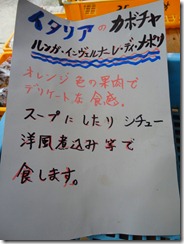 イタリアのカボチャ
ルンガ・インヴェルナーレ・ディ・ナポリ
オレンジ色の果肉で
デリケートな食感。
スープにしたりシチュー
洋風煮込み等で
食します。